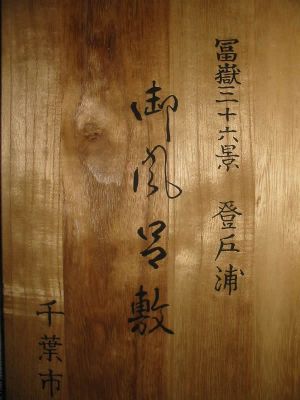 冨嶽三十六景 登戸浦
御風呂敷
千葉市